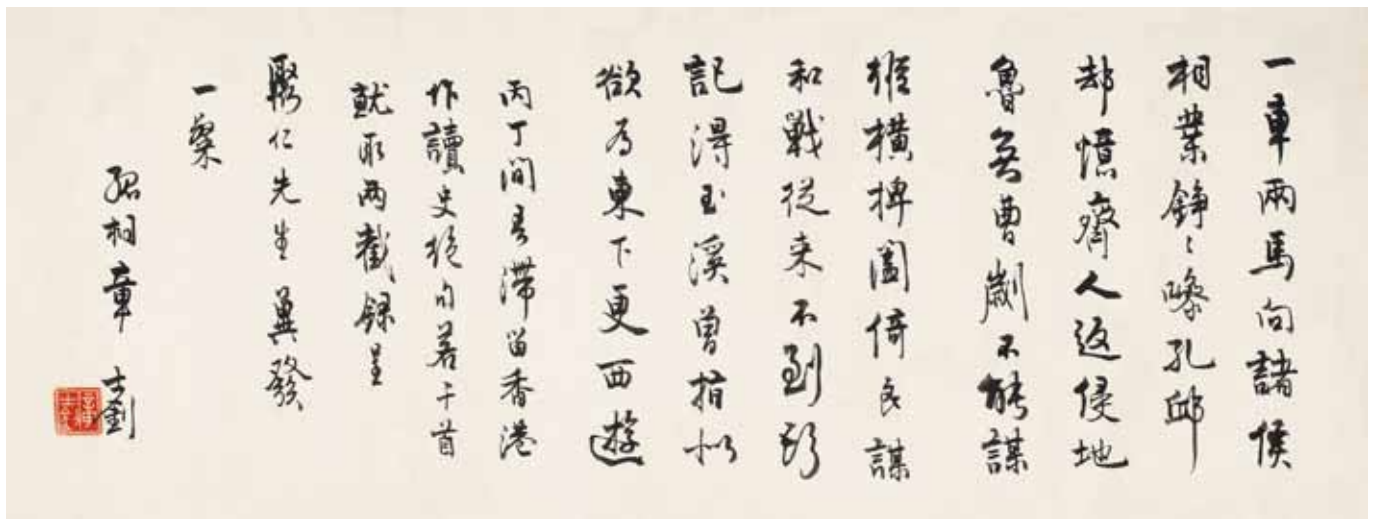 一車兩馬向諸侯
相業錚〻噪孔邱
却憶齊人返侵地
魯無曹劌不能謀
縱橫捭闔倚良謀
和戰從来不到頭
記得玉溪曾指似
欲為東下更西遊
丙丁間吾滯留香港
作讀史絕句若干首
就取兩截錄呈
聚仁先生 冀發
一粲
孤桐章士釗